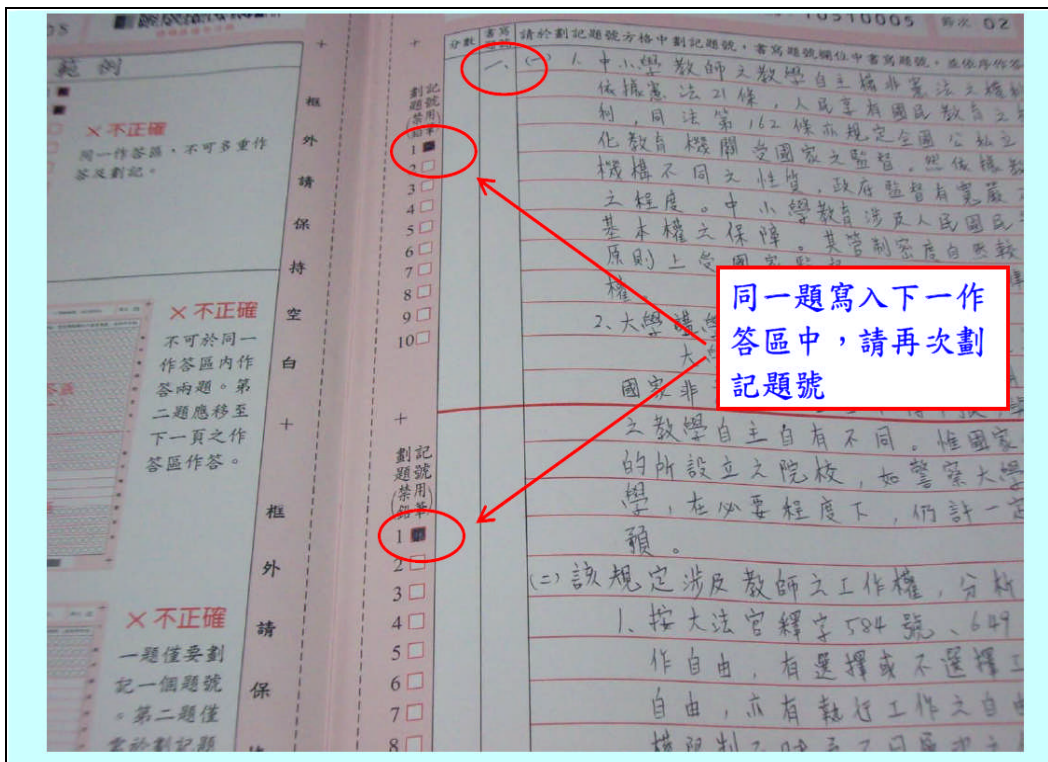 10510005 卷次 02
範例
×不正確
同一作答區,不可多重作
答及劃記。
×不正確
不可於同一
作答區內作
答兩題。第
二題應移至
下一頁之作
答區作答。
×不正確
一題僅要劃
記一個題號
。第二題僅
框外請保持空白
框外請保
劃記題號
(禁用鉛筆)
1
2
3
4
5
6
7
8
9
10
劃記題號
(禁用鉛筆)
1
2
3
4
5
6
7
8
分數
書寫題號
請於劃記題號方格中劃記題號,書寫題號欄位中書寫題號,並依序作答
一、
(一) 1. 中小學教師之教學自主權非憲法之權利
依據憲法21條,人民享有國民教育之
利,同法第162條亦規定全國公私立
化教育機關受國家之監督。然依據教
機構不同之性質,政府監督有寬嚴
之程度。中小學教育涉及人民國民
基本權之保障。其管制密度自然較
原則上受國家
權。
2、大學講學
大
國家非
之教學自主自有不同。惟國家
的所設立之院校,如警察大學
學,在必要程度下,仍許一定
預。
(二)該規定涉及教師之工作權,分析
1、按大法官釋字584號、649
作自由,有選擇或不選擇工
自由,亦有執行工作之自由
同一題寫入下一作
答區中,請再次劃
記題號